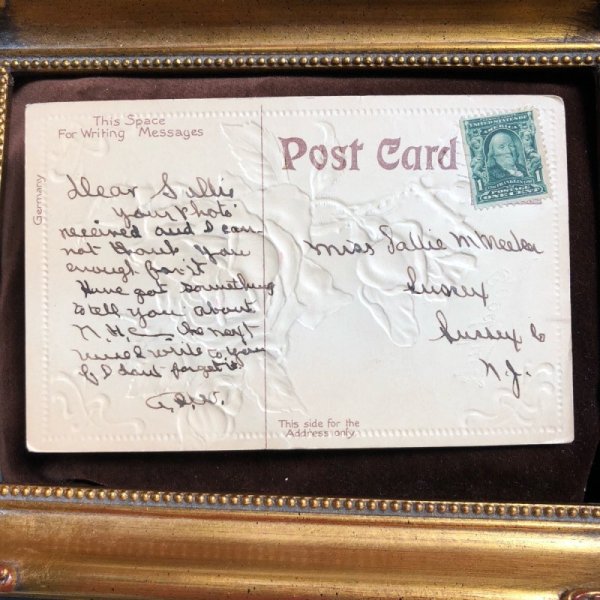 This Space
For Writing Messages
Germany
Post Card
UNITED STATES OF
AMERICA
1
FRANKLIN
1
POSTAGE
ONE CENT
Dear Sallie
your photo
received and I can
not thank you
enough for it
Have got something
to tell you about
N.H.C— the next
time I write to you
if I dont forget it
A.D.W.
Miss Sallie M Meeker
Sussex
Sussex Co
N.J.
This side for the
Address only.